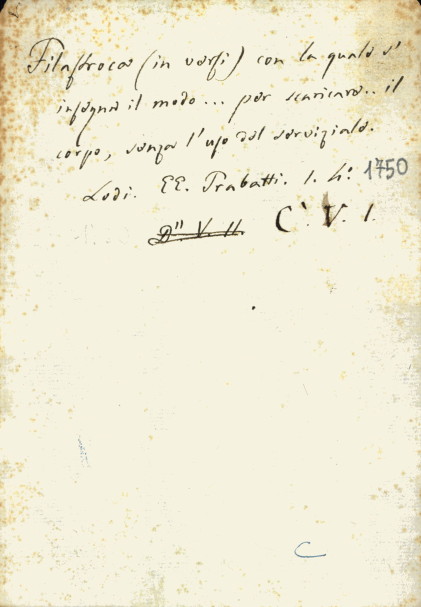 Filastroca (in versi) con la quale s'
insegna il modo... per scaricare.. il
corpo, senza l'uso del serviziale.
Lodi. EE. Trabatti. 1. 4°. 1750
D" V. 11.
C'. V. 1.
C